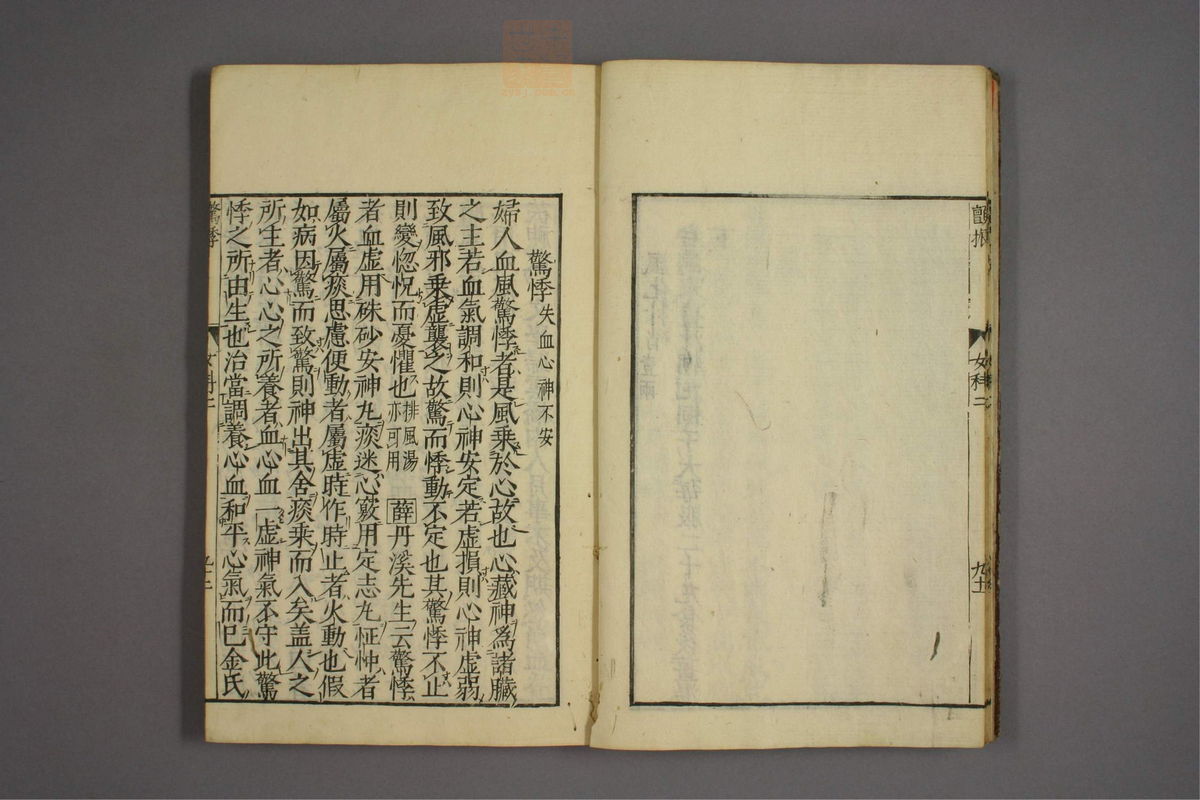 顫振
女科二
九十一
驚悸 失血心神不安
婦人血風驚悸者是風乗於心故也心藏神為諸臟
之主若血氣調和則心神安定若虚損則心神虚弱
致風邪乗虚襲之故驚而悸動不定也其驚悸不止
則變惚怳而憂懼也 排風湯亦可用 薛丹溪先生云驚悸
者血虚用硃砂安神丸痰迷心竅用定志丸怔忡者
屬火屬痰思慮便動者屬虚時作時止者火動也假
如病因驚而致驚則神出其舍痰乗而入矣盖人之
所主者心心之所養者血心血一虚神氣不守此驚
悸之所由生也治當調養心血和平心氣而巳金氏
驚悸
女科二
九十二